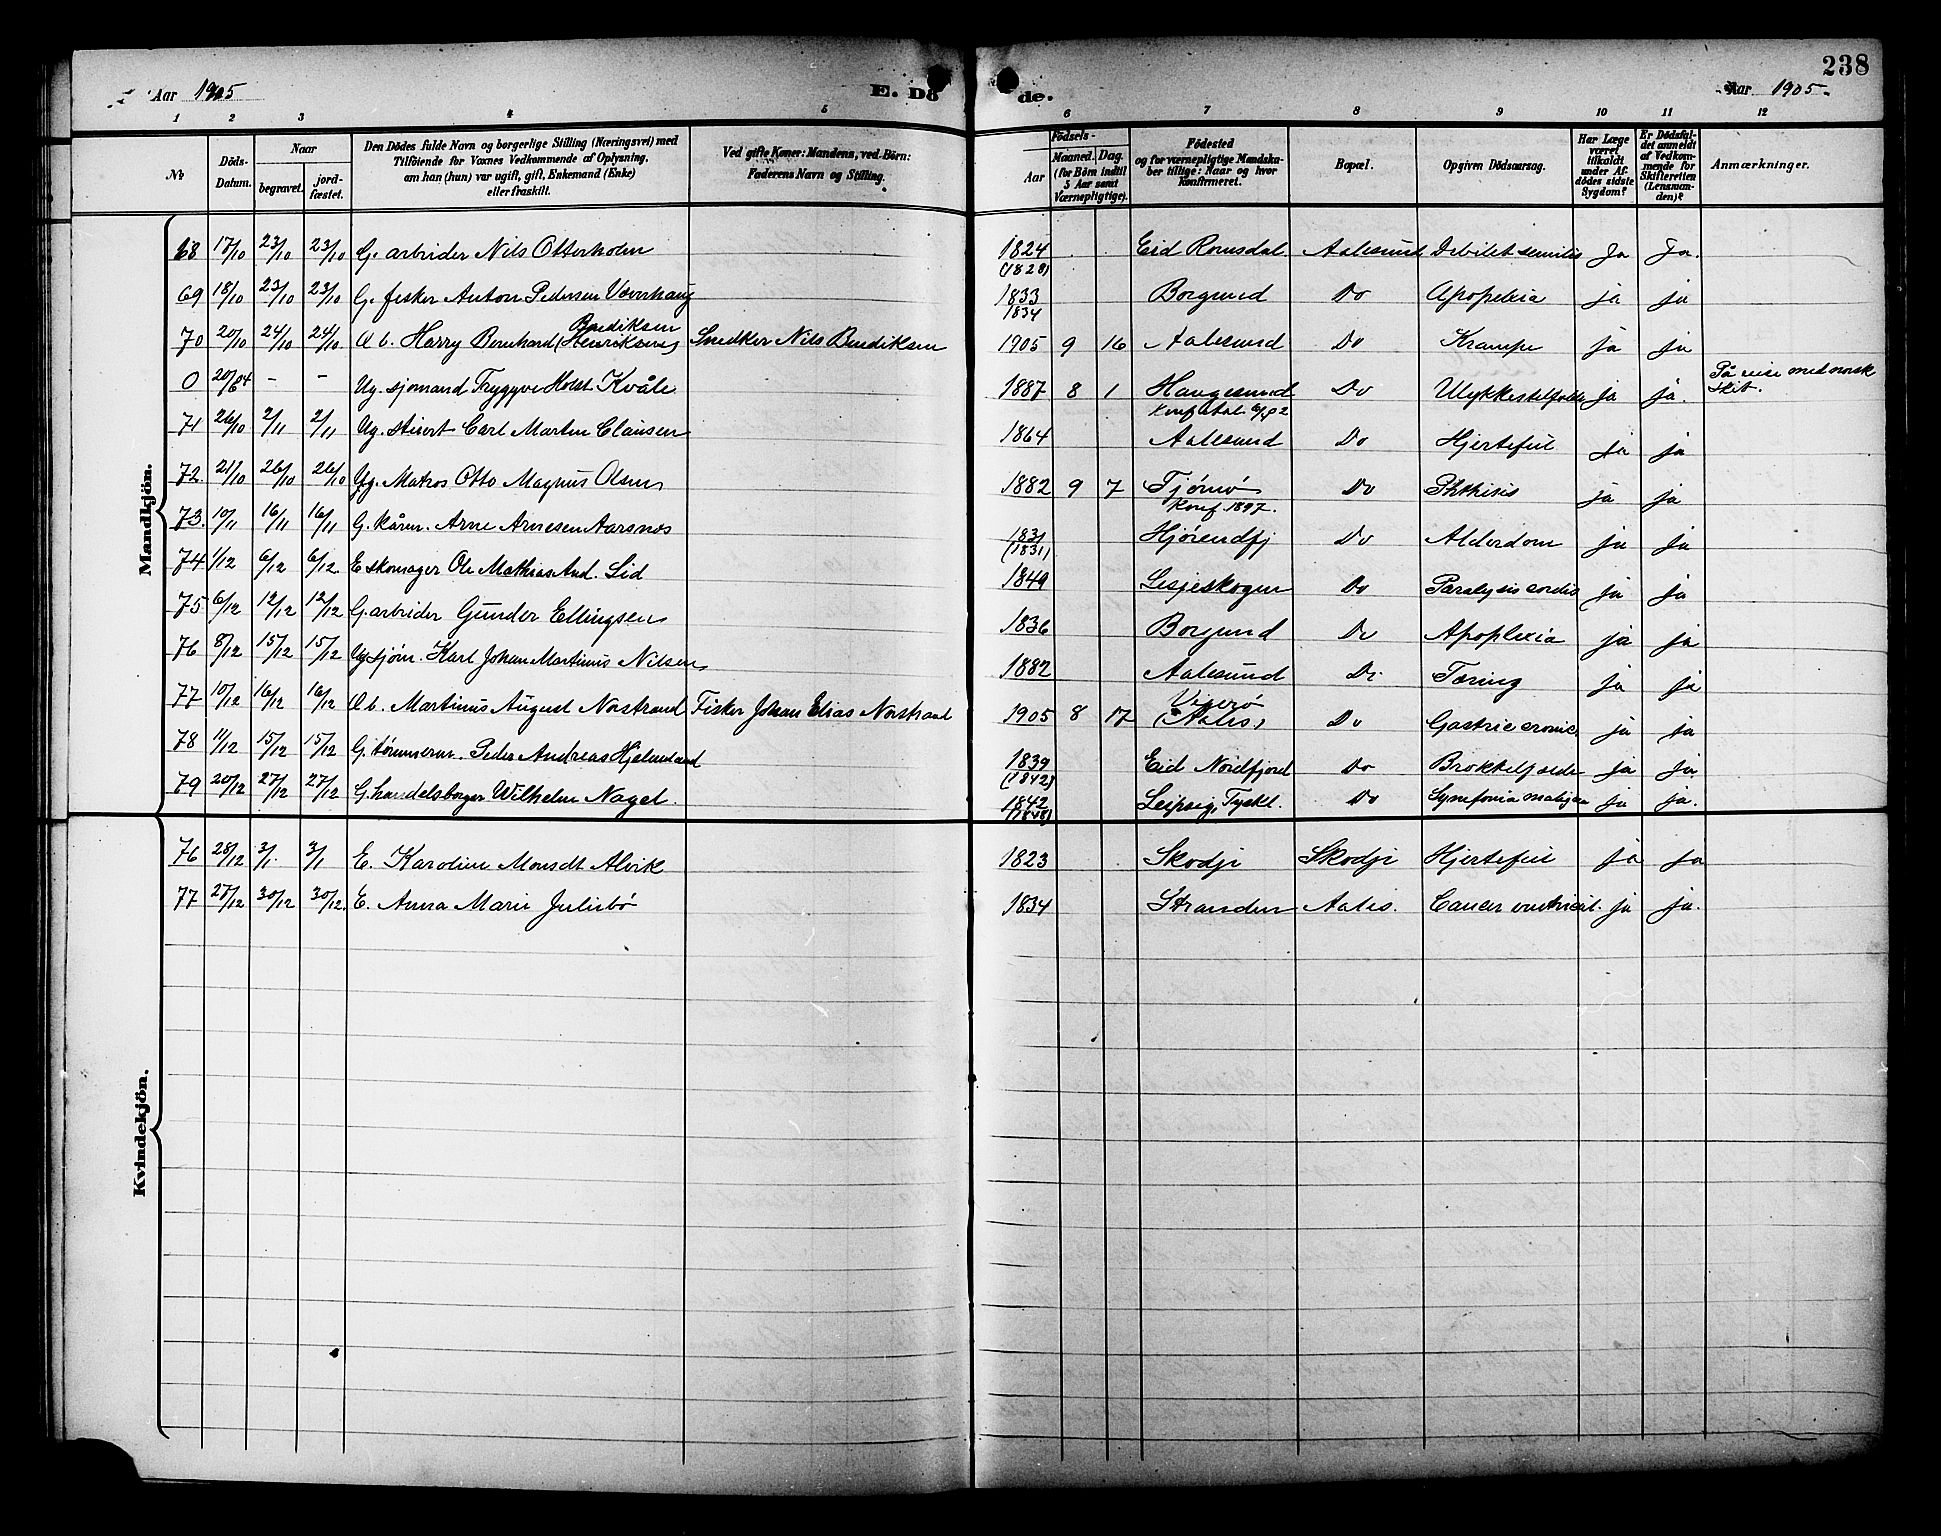 238
Aar 1905
E. Dö de.
Aar 1905.
1 2 3 4 5 6 7 8 9 10 11 12
№
Döds-Datum.
Naar
begravet.
jord-fæstet.
Den Dödes fulde Navn og borgerlige Stilling (Næringsvei) med
Tilföiende for Voxnes Vedkommende af Oplysning,
om han (hun) var ugift, gift, Enkemand (Enke)
eller fraskilt.
Ved gifte Koner: Mandens, ved Börn:
Faderens Navn og Stilling.
Födsels-
Aar
Maaned. Dag.
(for Börn indtil
5 Aar samt
Værnepligtige).
Födested
og for værnepligtige Mandska-
ber tillige: Naar og hvor
konfirmeret.
Bopæl.
Opgiven Dödsaarsag.
Har Læge
været
tilkaldt
under Af-
dödes sidste
Sygdom?
Er Dödsfal-
det anmeldt
af Vedkom-
mende for
Skifteretten
(Lensman-
den)?
Anmærkninger.
Mandkjön.
68 17/10 23/10 23/10 G. arbeider Nils Otterholm 1824 (1828) Eid Romsdal Aalesund Debilet senilis Ja Ja.
69 18/10 23/10 23/10 G. fisker Anton Pedersen 1833 1834 Borgund Do Apoplexia ja ja
70 20/10 24/10 24/10 U b. Harry Bernhard Bendiksen (Henriksen) Snedker Nils Bendiksen 1905 9 16 Aalesund Do Krampe ja ja
0 20/6 04 - - Ug. sjømand Trygve Holst Kvåle 1887 8 1 Haugesund Do Ulykkestilfælde ja ja. På reise med norsk skib.
71 26/10 2/11 2/11 Ug. stuert Carl Martin Clausen 1864 Aalesund Do Hjertefeil ja ja
72. 21/10 26/10 26/10 Ug. Matros Otto Magnus Olsen 1882 9 7 Tjømø Konf. 1897. Do Phthisis ja ja
73. 10/11 16/11 16/11 G. kårm. Arne Arnesen Aarsnes 1831 (1831) Hjørendfj Do Alderdom ja ja
74 1/12 6/12 6/12 E skomager Ole Mathias And. Lid 1849 Lesjeskogen Do Paralysis cordis ja ja
75 6/12 12/12 12/12 G. arbeider Gunder Ellingsen 1836 Borgund Do Apoplexia ja ja
76 8/12 15/12 15/12 Ug sjøm. Karl Johan Martinus Nilsen 1882 Aalesund Do Tæring ja ja
77 10/12 16/12 16/12 U b. Martinus August Norstrand Fisker Johan Elias Norstrand 1905 8 17 Vigerø (Aales.) Do Gastric cronic. ja ja
78 11/12 15/12 15/12 G. tømmerm. Peder Andreas Hjelmeland 1839 (1842) Eid Nordfjord Do Broktilfælde ja ja
79 20/12 27/12 27/12 G. handelsborger Wilhelm Nagel. 1842 (1848) Leipzig, Tyskl. Do ja ja.
Kvindekjön.
76 28/12 3/1 3/1 E. Karoline Monsdt Alvik 1823 Skodje Skodje Hjertefeil ja ja
77 27/12 30/12 30/12. E. Anna Marie Juliebø 1834 Stranden Aales. Cancer ventricul. ja ja.